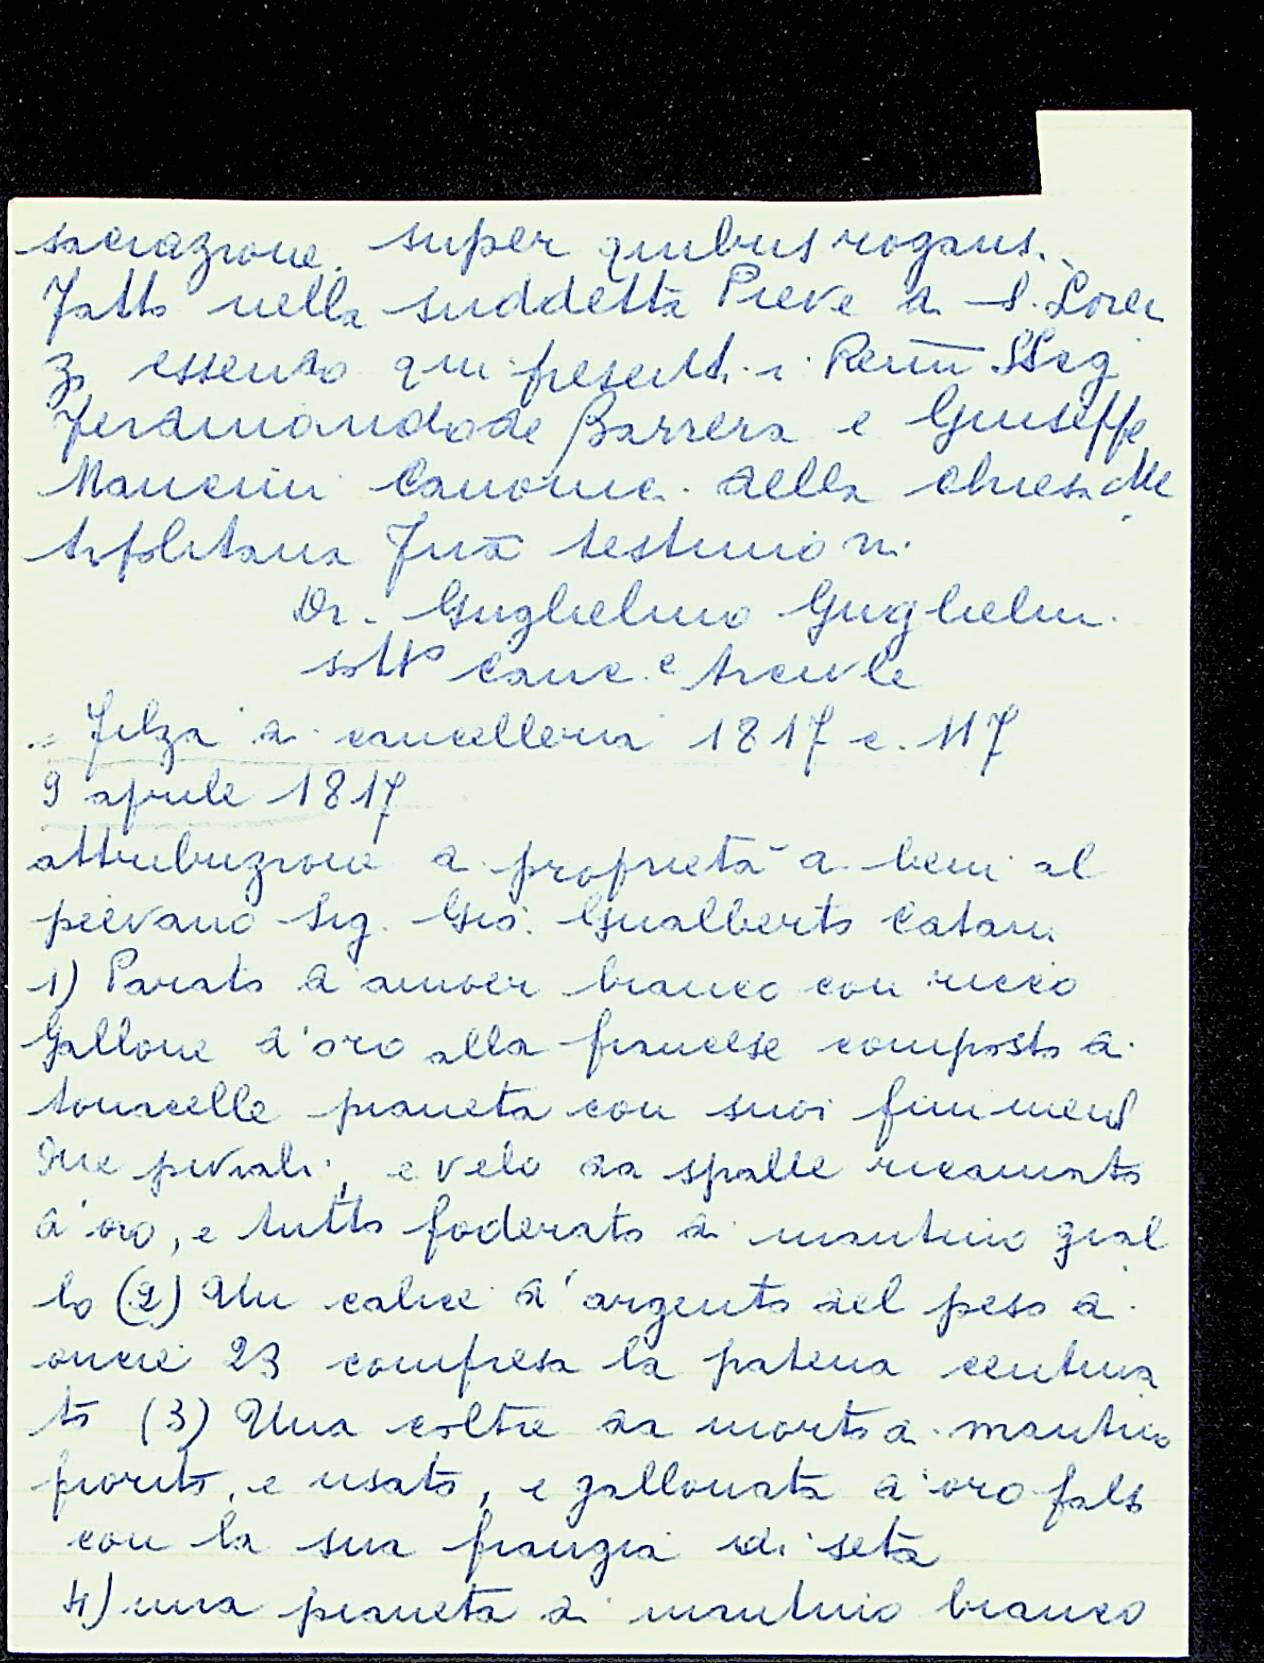 sacrazione. super quibus rogaus.
Fatto nella suddetta Pieve di S. Loren
zo essendo qui presenti i Remi SSig
Ferdinando de Barrera e Giuseppe
Mancini Canonici della chiesa Me
tropolitana Fiña testimoni.
Dr. Guglielmo Guglielmi
sotto Canc. e Arcivle
= Filza di cancelleria 1817 c. 117
9 aprile 1817
attribuzione di proprietà di beni al
pievano Sig. Gio: Gualberto Catani
1) Parato d'amoer bianco con ricco
Gallone d'oro alla francese composto di
tonacelle pianeta con suoi finimenti
due piviali, e velo da spalle ricamato
d'oro, e tutto foderato di mantino gial
lo (2) Un calice d'argento del peso di
oncie 23 compresa la patena centina
to (3) Una coltre da morto di mantino
fiorito, e usato, e gallonata d'oro falso
con la sua frangia di seta
4) una pianeta di mantino bianco